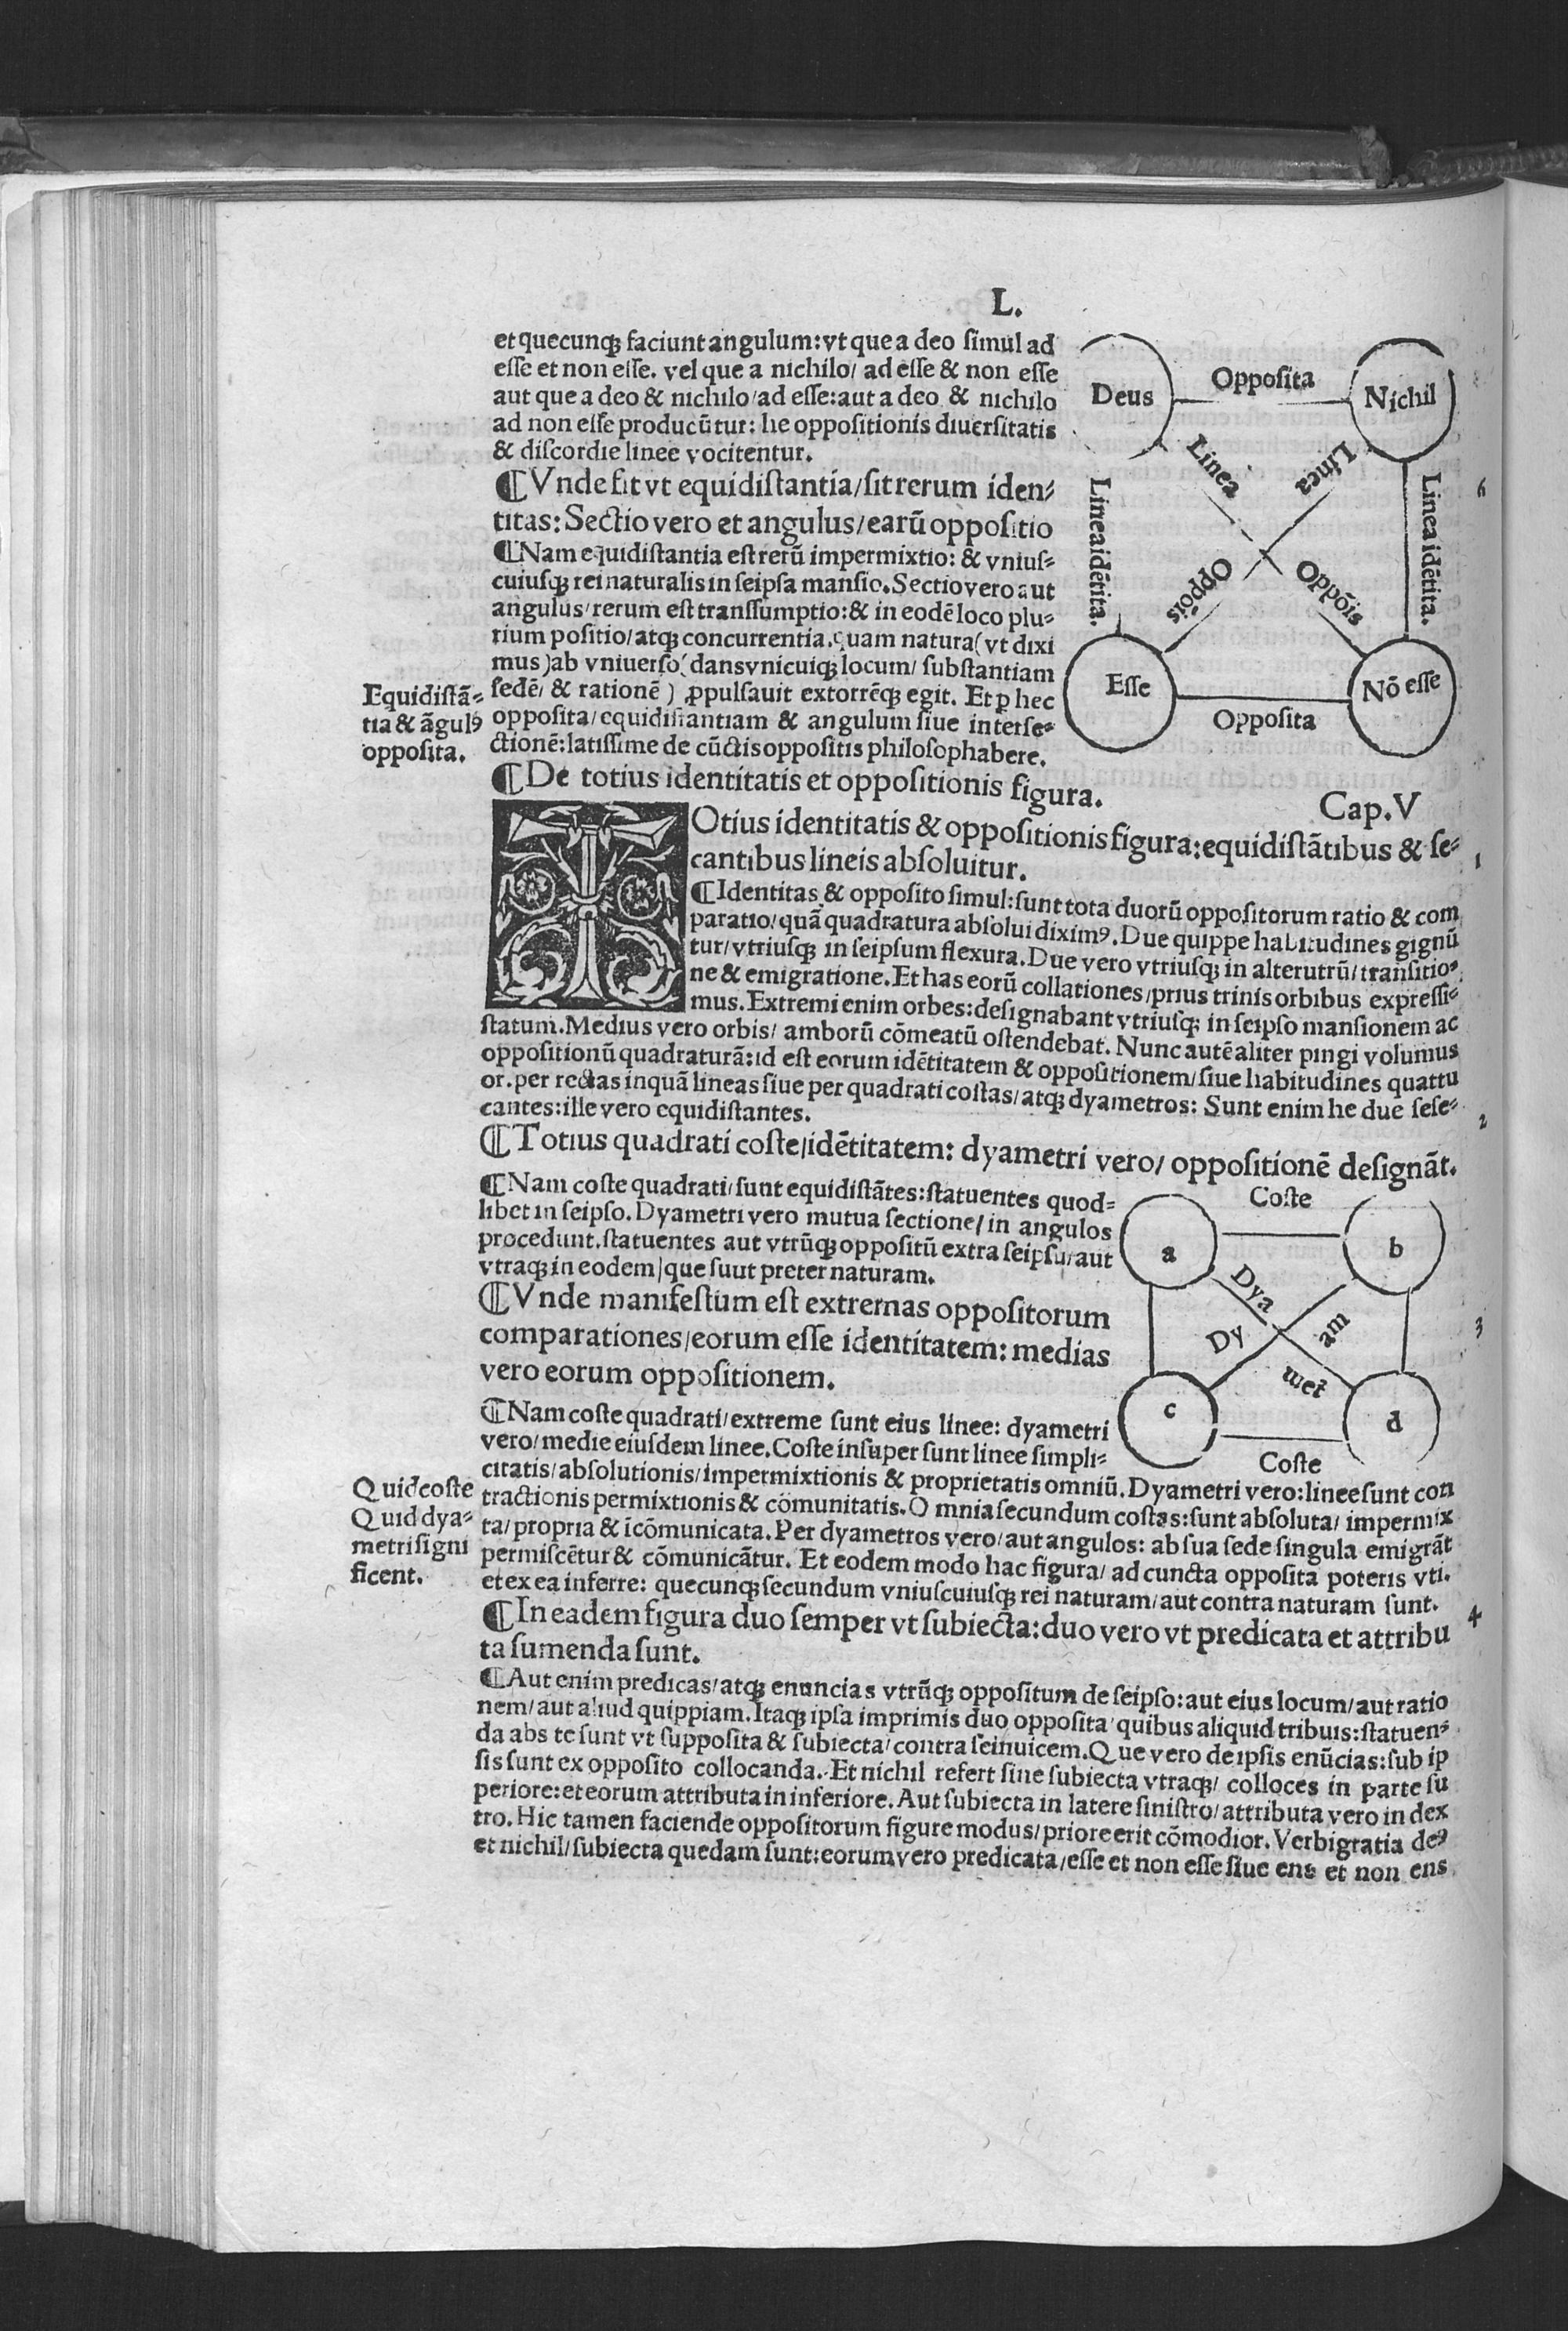 L.
et quecunqȝ faciunt angulum: vt que a deo simul ad
esse et non esse. vel que a nichilo/ ad esse & non esse
aut que a deo & nichilo/ad esse: aut a deo & nichilo
ad non esse producūtur: he oppositionis diuersitatis
& discordie linee vocitentur.
Deus
Opposita
Nichil
Linea
Linea
Linea idētita.
Linea idētita.
Oppōis
Oppōis
Esse
Opposita
Nō esse
6
¶Vnde fit vt equidistantia/sit rerum iden-
titas: Sectio vero et angulus/earū oppositio
¶Nam equidistantia est rerū impermixtio: & vnius-
cuiusqȝ rei naturalis in seipsa mansio. Sectio vero aut
angulus/rerum est transsumptio: & in eodē loco plu-
rium positio/atqȝ concurrentia. quam natura (vt dixi
mus) ab vniuerso (dans vnicuiqȝ locum/ substantiam
sedē/ & rationē) ꝓpulsauit extorrēqȝ egit. Et ꝑ hec
opposita/equidistantiam & angulum siue interse-
ctionē: latissime de cūctis oppositis philosophabere.
Equidistā-
tia & āgulꝰ
opposita.
¶De totius identitatis et oppositionis figura.
Cap.V
TOtius identitatis & oppositionis figura: equidistātibus & se-
cantibus lineis absoluitur.
1
¶Identitas & opposito simul: sunt tota duorū oppositorum ratio & com
paratio/quā quadratura absolui diximꝰ. Due quippe habitudines gignū
tur/vtriusqȝ in seipsum flexura. Due vero vtriusqȝ in alterutrū/transitio-
ne & emigratione. Et has eorū collationes/prius trinis orbibus expressi-
mus. Extremi enim orbes: designabant vtriusqȝ in seipso mansionem ac
statum. Medius vero orbis/ amborū cōmeatū ostendebat. Nunc autē aliter pingi volumus
oppositionū quadraturā: id est eorum idētitatem & oppositionem/siue habitudines quattu
or. per rectas inquā lineas siue per quadrati costas/atqȝ dyametros: Sunt enim he due sese-
cantes: ille vero equidistantes.
2
¶Totius quadrati coste/idētitatem: dyametri vero/ oppositionē designāt.
¶Nam coste quadrati/sunt equidistātes: statuentes quod-
libet in seipso. Dyametri vero mutua sectione/in angulos
procedunt. statuentes aut vtrūqȝ oppositū extra seipsū/aut
vtraqȝ in eodem/que suut preter naturam.
¶Vnde manifestum est extremas oppositorum
comparationes/eorum esse identitatem: medias
vero eorum oppositionem.
3
Coste
a
b
Dya
Dy
am
met
c
d
Coste
¶Nam coste quadrati/extreme sunt eius linee: dyametri
vero/medie eiusdem linee. Coste insuper sunt linee simpli-
citatis/absolutionis/impermixtionis & proprietatis omniū. Dyametri vero: linee sunt con
tractionis permixtionis & cōmunitatis. Omnia secundum costas: sunt absoluta/ impermix
ta/propria & īcōmunicata. Per dyametros vero/aut angulos: ab sua sede singula emigrāt
permiscētur & cōmunicātur. Et eodem modo hac figura/ ad cuncta opposita poteris vti.
et ex ea inferre: quecunqȝ secundum vniuscuiusqȝ rei naturam/aut contra naturam sunt.
Quid coste
Quid dya-
metri signi
ficent.
¶In eadem figura duo semper vt subiecta: duo vero vt predicata et attribu
ta sumenda sunt.
4
¶Aut enim predicas/atqȝ enuncias vtrūqȝ oppositum de seipso: aut eius locum/aut ratio
nem/aut aliud quippiam. Itaqȝ ipsa imprimis duo opposita/quibus aliquid tribuis: statuen-
da abs te sunt vt supposita & subiecta/contra seinuicem. Que vero de ipsis enūcias: sub ip
sis sunt ex opposito collocanda. Et nichil refert siue subiecta vtraqȝ/ colloces in parte su
periore: et eorum attributa in inferiore. Aut subiecta in latere sinistro/attributa vero in dex
tro. Hic tamen faciende oppositorum figure modus/priore erit cōmodior. Verbigratia deꝰ
et nichil/subiecta quedam sunt: eorum vero predicata/esse et non esse siue ens et non ens